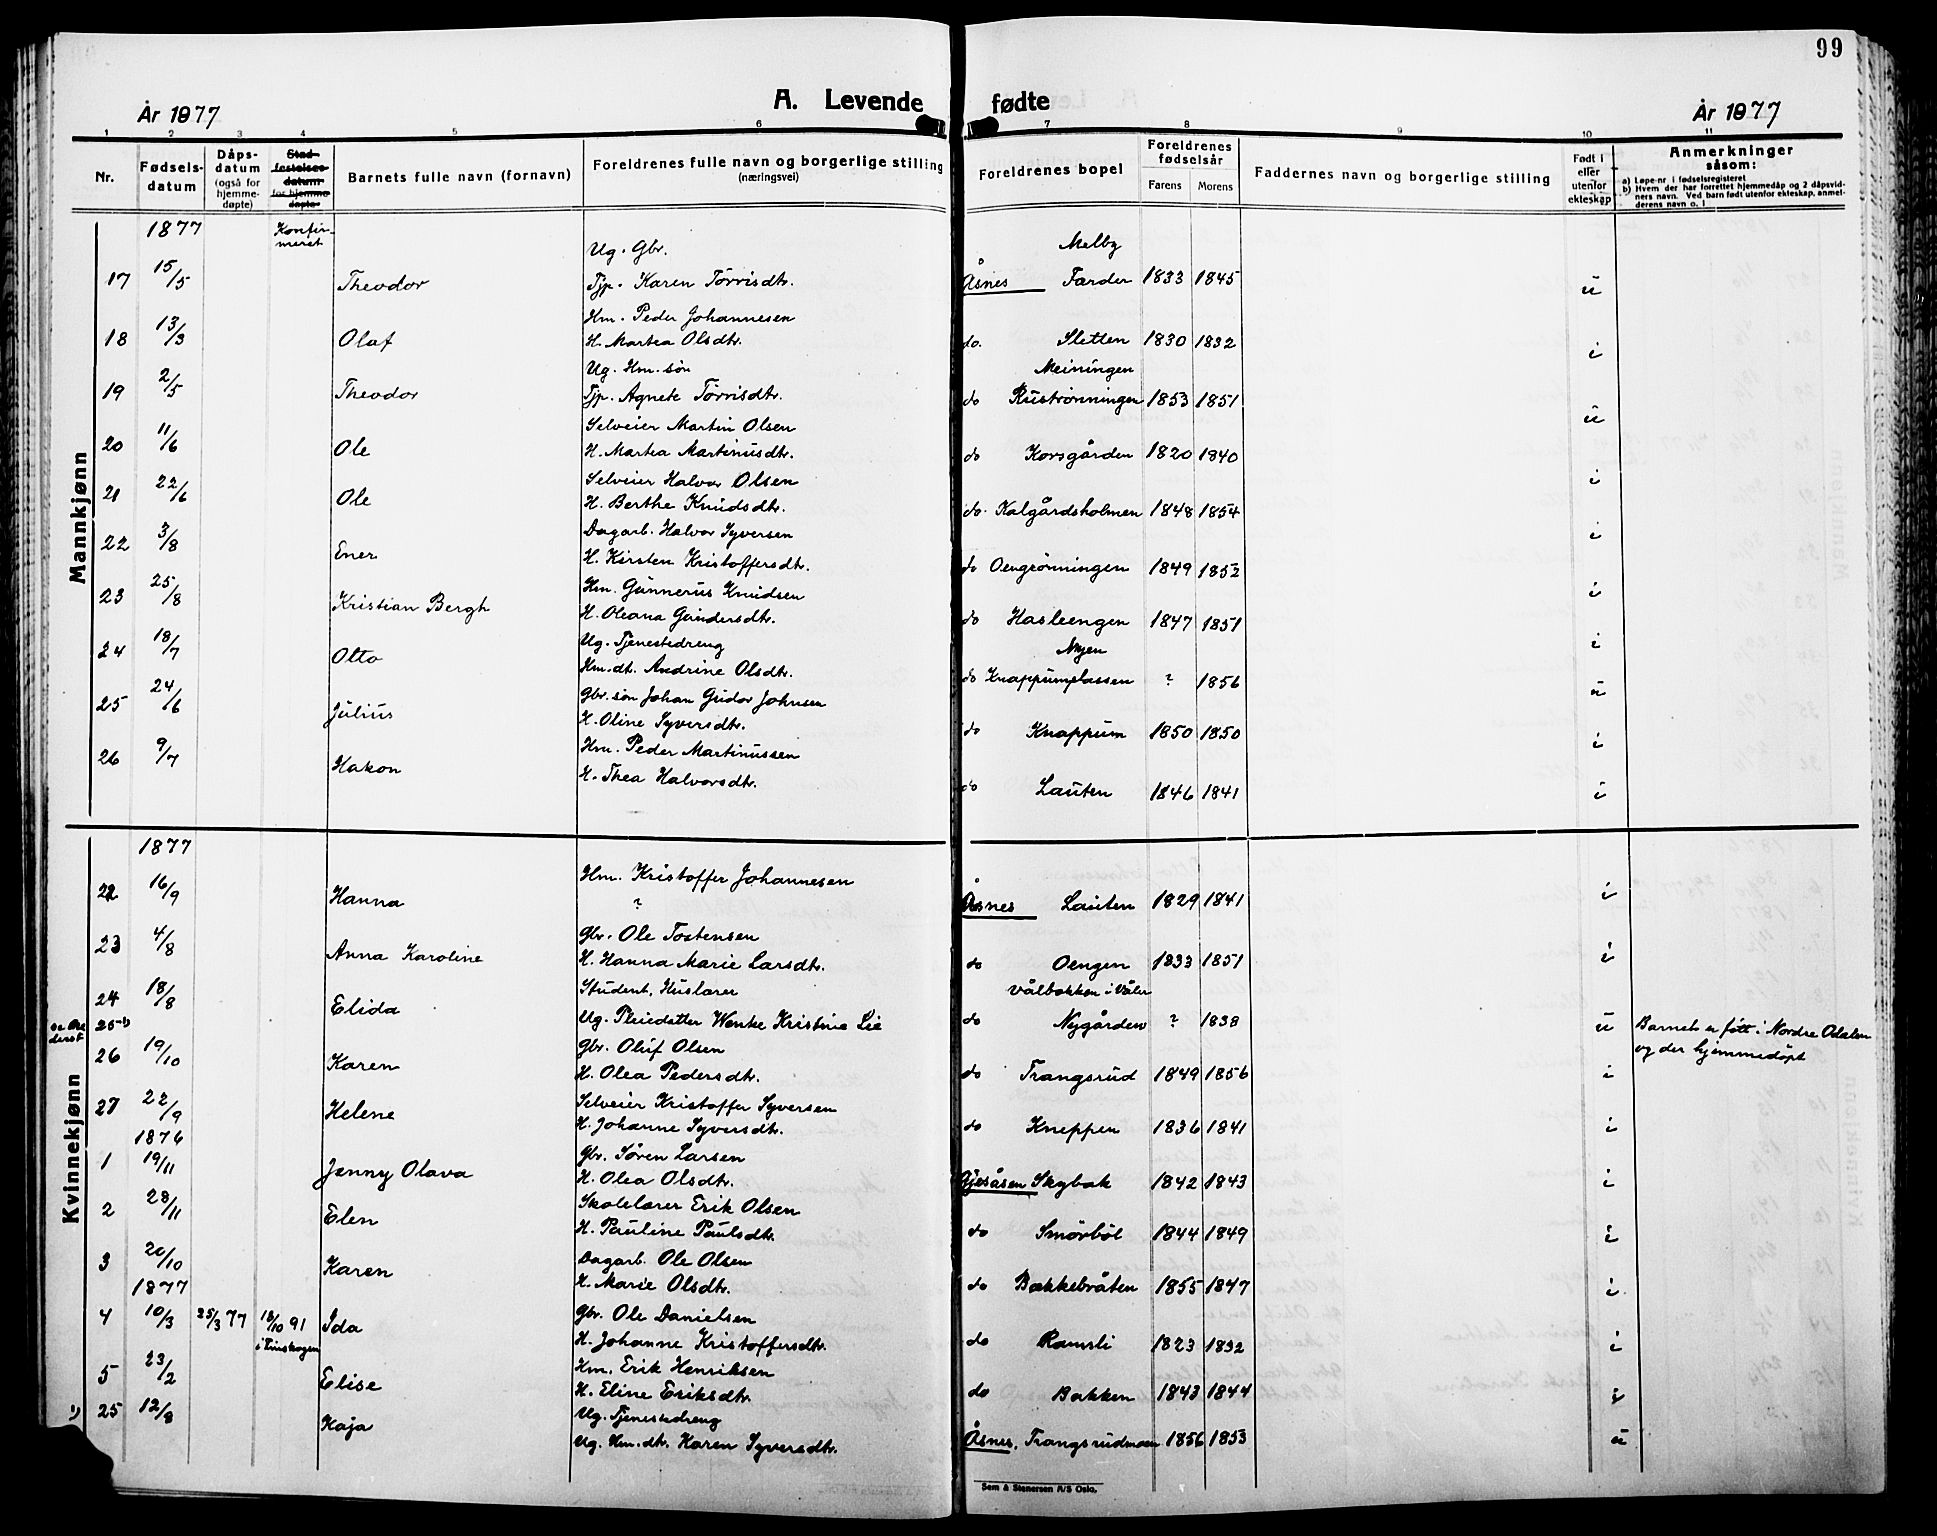 99
År 1877 A. Levende fødte År 1877
1 2 3 4 5 6 7 8 9 10 11
Nr. Fødsels-datum Dåps-datum (også for hjemme-døpte) Stad-festelses-datum for hjemme-døpte Barnets fulle navn (fornavn) Foreldrenes fulle navn og borgerlige stilling (næringsvei) Foreldrenes bopel Foreldrenes fødselsår Farens Morens Faddernes navn og borgerlige stilling Født i eller utenfor ekteskap Anmerkninger såsom: a) Løpe-nr i fødselsregisteret b) Hvem der har forrettet hjemmedåp og 2 dåpsvidners navn. Ved barn født utenfor ekteskap, anmelderens navn o. l
Mannkjønn
1877 Konfirmeret
Ug. Gbr. Melby
17 15/5 Theodor Tjp. Karen Tørrisdtr. Åsnes Farder 1833 1845 u
Hm. Peder Johannesen
18 13/3 Olaf H. Martea Olsdtr. do. Sletten 1830 1832 i
Ug. Hm. søn Meiningen
19 2/5 Theodor Tjp. Agnete Tørrisdtr. do Rustrønningen 1853 1851 u
Selveier Martin Olsen
20 11/6 Ole H. Martea Martinusdtr. do Korsgården 1820 1840 i
Selveier Halvor Olsen
21 22/6 Ole H. Berthe Knudsdtr. do. Kalgårdsholmen 1848 1854 i
Dagarb. Halvor Syversen
22 3/8 Ener H. Kirsten Kristoffersdtr. do Oengrønningen 1849 1852 i
Hm. Gunnerus Knudsen
23 25/8 Kristian Bergh H. Oleana Gundersdtr. do Hasleengen 1847 1851 i
Ug. Tjenestedreng Nyen
24 18/7 Otto Hm.dt. Andrine Olsdtr. do Knappumplassen ? 1856 u
Gbr. søn Johan Gudor Johnsen
25 24/6 Julius H. Oline Syversdtr. do Knappum 1850 1850 i
Hm. Peder Martinussen
26 9/7 Hakon H. Thea Halvorsdtr. do Lauten 1846 1841 i
Kvinnekjønn
1877
Hm. Kristoffer Johannesen
22 16/9 Hanna ? Åsnes Lauten 1829 1841 i
Gbr. Ole Tostensen
23 4/8 Anna Karoline H. Hanna Marie Larsdtr. do Oengen 1833 1851 i
Student, Huslærer Vålbakken i Våler
24 18/8 Elida Ug. Pleiedatter Wenke Kristine Lie do Nygården ? 1838 u Barnet er født i Nordre Odalen og der hjemmedøpt
25 1)
Gbr. Oluf Olsen
26 19/10 Karen H. Olea Pedersdtr. do Trangsrud 1849 1856 i
Selveier Kristoffer Syversen
27 22/9 Helene H. Johanne Syversdtr. do Kneppen 1836 1841 i
1876
Gbr. Søren Larsen
1 19/11 Jenny Olava H. Olea Olsdtr. Gjesåsen Skybak 1842 1843 i
Skolelærer Erik Olsen
2 28/11 Elen H. Pauline Paulsdtr. do Smørbøl 1844 1849 i
Dagarb. Ole Olsen
3 20/10 Karen H. Marie Olsdtr. do Bakkebråten 1855 1847 i
1877
Gbr. Ole Danielsen
4 10/3 25/3 77 18/10 91 Ida H. Johanne Kristoffersdtr. do Ramsli 1823 1832 i
Hm. Erik Henriksen
5 23/2 Elise H. Eline Eriksdtr. do Bakken 1843 1844 i
Ug. Tjenestedreng
1) 25 12/8 Kaja Ug. Hm. dt. Karen Syversdtr. Åsnes, Trangsrudmoen 1856 1853 u
Sem & Stenersen A/S Oslo.